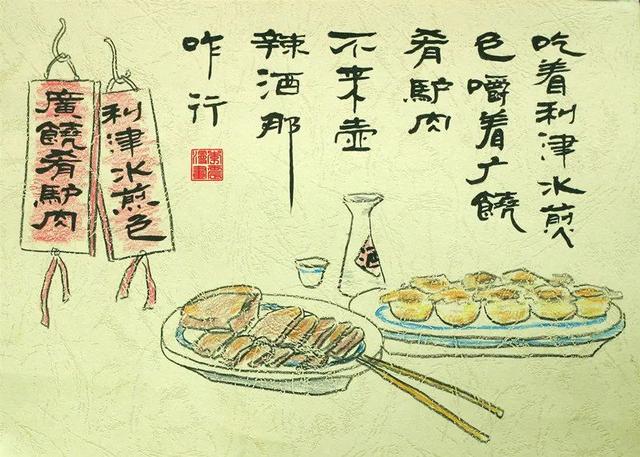 吃着利津水煎
包嚼着广饒
肴馿肉
不来壶
辣酒那
咋行
利津水煎包
廣饒肴馿肉
酒